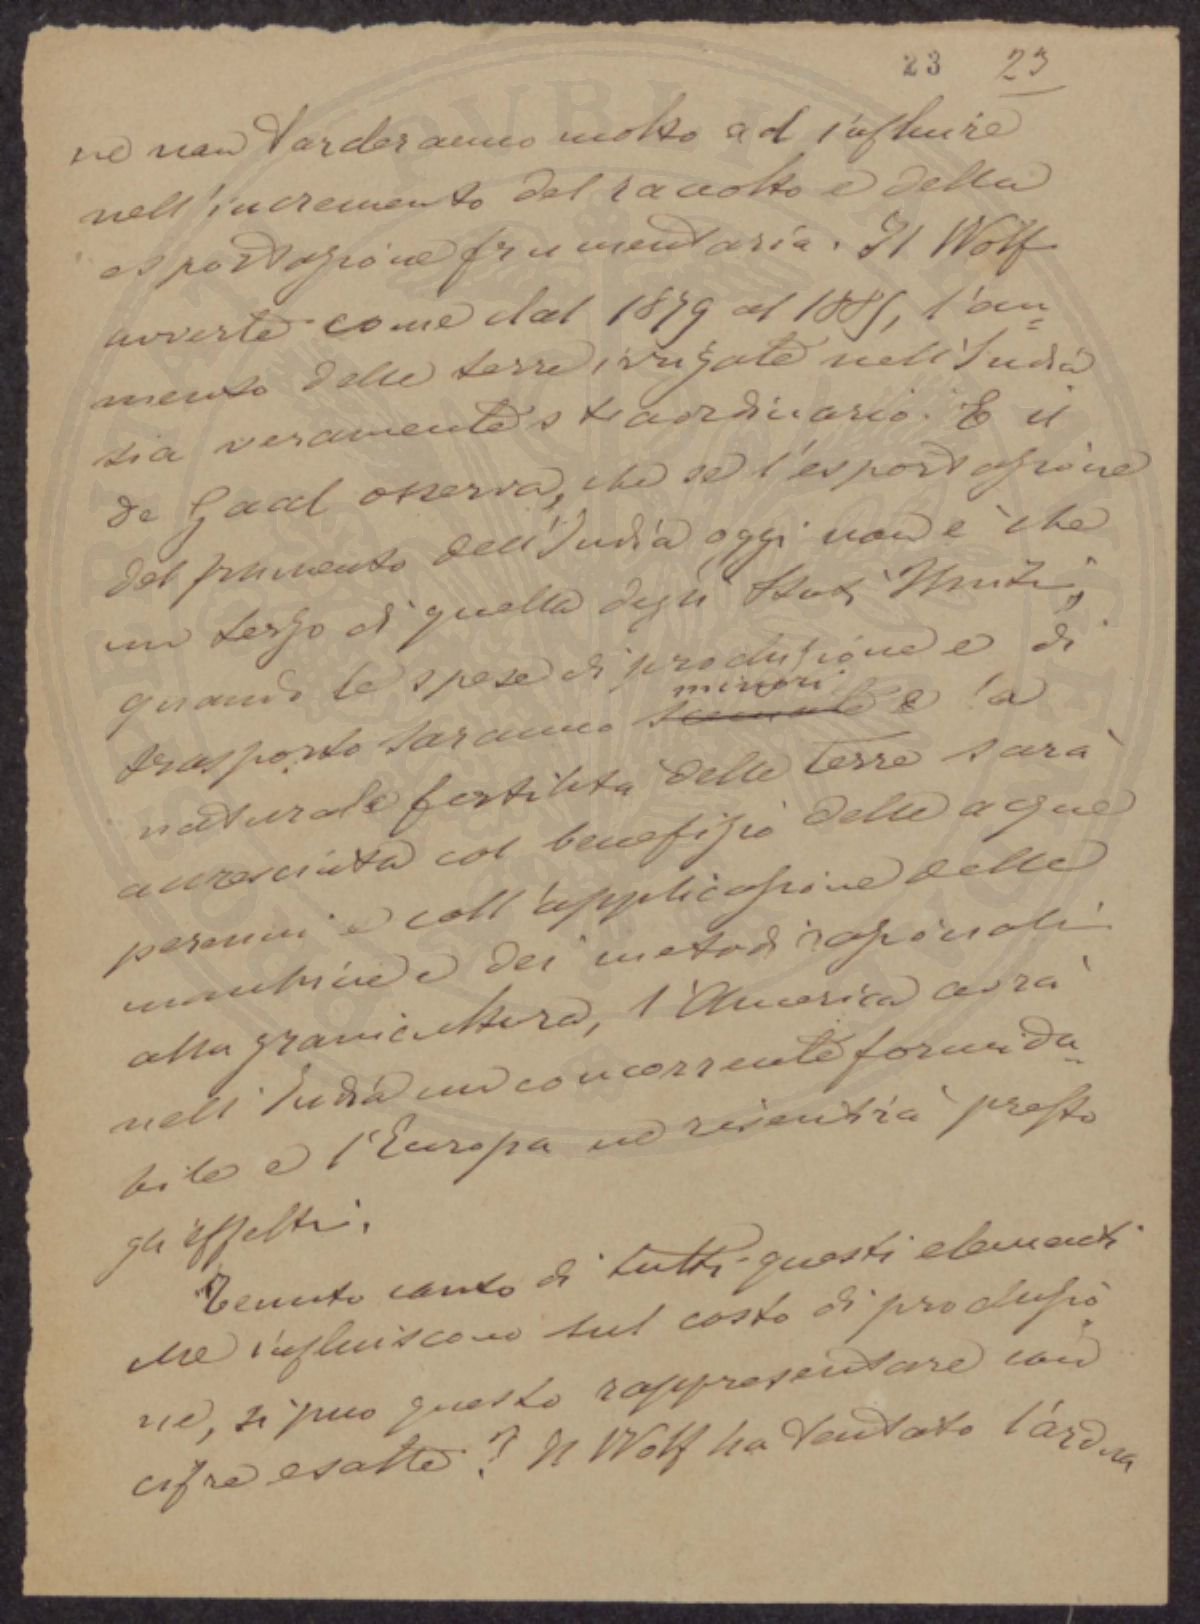 23 23
ne non tarderanno molto ad influire
nell'incremento del raccolto e della
esportazione frumentaria. Il Wolf
avverte come dal 1879 al 1885, l'au=
mento delle terre irrigate nell'India
sia veramente straordinario. E il
de Gaal osserva, che se l'esportazione
del frumento dell'India oggi non è che
un terzo di quella degli Stati Uniti,
quando le spese di produzione e di
minori
trasporto saranno scemate e la
naturale fertilità delle terre sarà
accresciuta col benefizio delle acque
perenni e coll'applicazione delle
macchine e dei metodi razionali
alla granicultura, l'America avrà
nell'India un concorrente formida=
bile e l'Europa ne risentirà presto
gli effetti.
Tenuto conto di tutti questi elementi
che influiscono sul costo di produzio
ne, si può questo rappresentare con
cifre esatte? Il Wolf ha tentato l'ardua